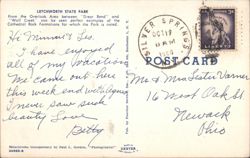 LETCHWORTH STATE PARK
From the Overlook Area between "Great Bend" and
"Wolf Creek" can be seen perfect examples of the
Cathedral Rock Formations for which the Park is noted.
Hi Minnie & Les.
I have enjoyed
all of my vacation
We came out here
this week end with
I never saw such
beauty Love
Betty
SILVER SPRINGS
OCT 17
POST CARD
Mr & Mrs Lester Varner
16 West Oak St
Newark
Ohio